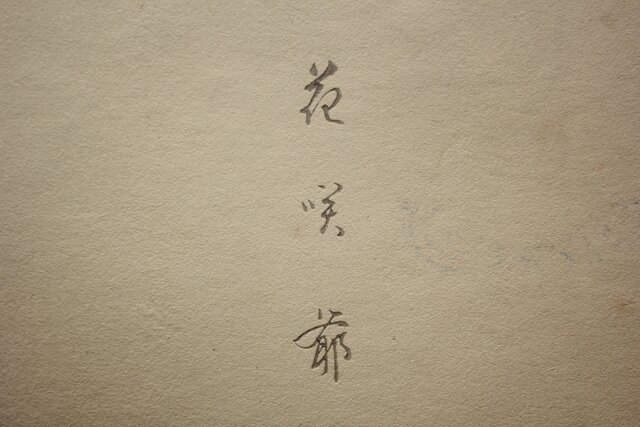 花咲爺